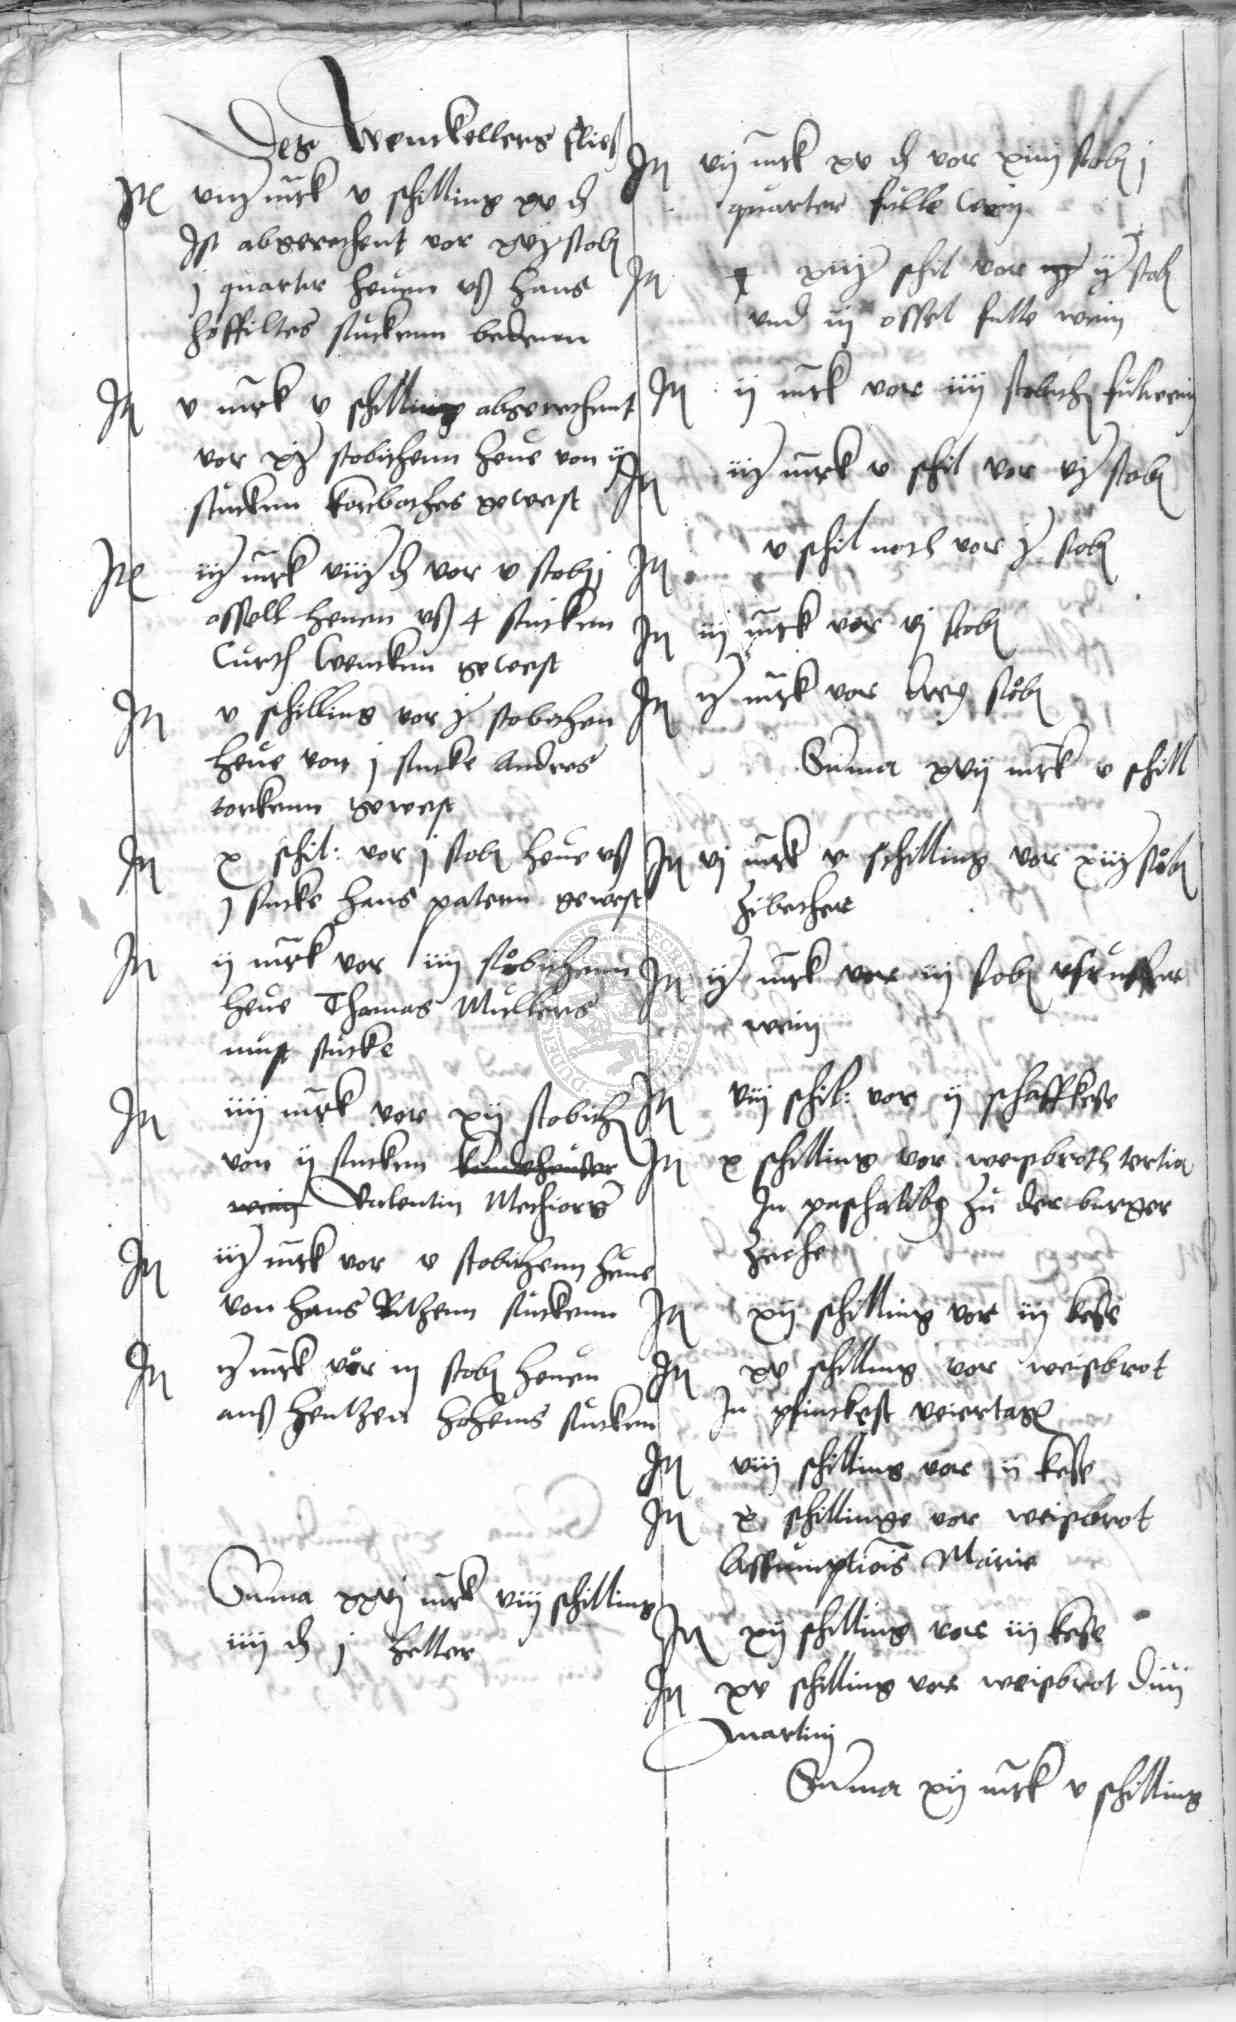 Des Wenckellers
It viii mrk v schilling xv d
Ist abgerechent vor xvj stob
j quartir heuen uß Hans
Hoffiltes stucken
It v mrk v schilling abgerechent
vor xj stobichenn heue von ij
stucken gewest
It iij mrk viij d vor v stob j
ossell heuen uß 4 stucken
Curth Wencken gewest
It v schilling vor j stobichen
heue von j stucke Andres
gewest
It x schil: vor j stob heue uß
j stucke Hans gewest
It ij mrk vor iiij stobichenn
heue Thomas Mullers
must stucke
It iiij mrk vor xij stobich
von ij stucken
Valentin
It iij mrk vor v stobichenn heue
von Hans stuckenn
It ij mrk vor iij stob heuen
auß stucken
Summa xxvj mrk viij schilling
iiij d j heller
It vij mrk xv d vor xiiij stob j
quarter fulle wein
It xiij schil vor ij stob
und iij ossel fulle wein
It ij mrk vor iiij stobich fulwein
It iij mrk v schil vor vj stob
It v schil noch vor j stob
It iij mrk vor vj stob
It ij mrk vor drey stob
Summa xvij mrk v schill
It vj mrk v schilling vor xiij stob
It ij mrk vor iij stob
wein
It viij schil: vor ij schaffkese
It x schilling vor weisbroth tertia
In paschalibus zu der burger
zeche
It xij schilling vor iij kese
It xv schilling vor weisbrot
In pfinckest veiertage
It viij schilling vor ij kese
It x schillinge vor weisbrot
Assumptiois Marie
It xij schilling vor iij kese
It xv schilling vor weisbrot
Martini
Summa xij mrk v schilling